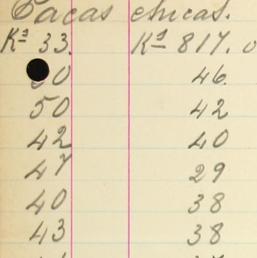 Pacas chicas.
Ks 33. Ks 817.0
50 46
50 42
42 40
47 29
40 38
43 38